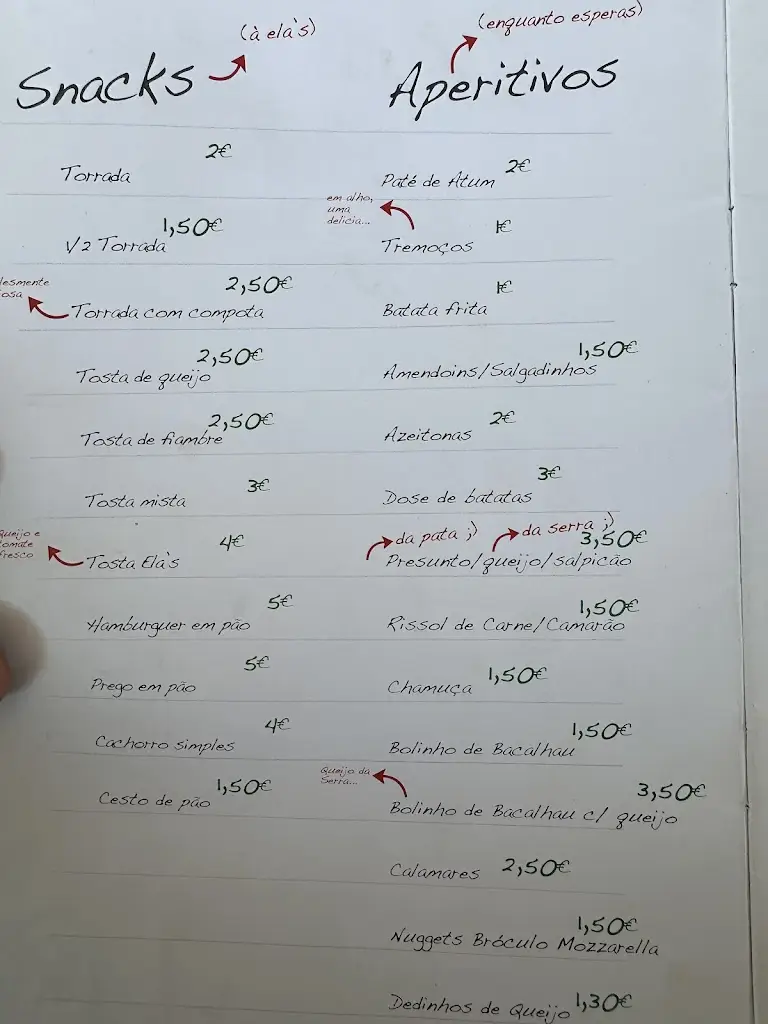 (à ela's)
Snacks
2€
Torrada
1,50€
1/2 Torrada
2,50€
Torrada com compota
2,50€
Tosta de queijo
2,50€
Tosta de fiambre
3€
Tosta mista
Queijo e
tomate
fresco
4€
Tosta Ela's
5€
Hamburguer em pão
5€
Prego em pão
4€
Cachorro simples
1,50€
Cesto de pão
(enquanto esperas)
Aperitivos
2€
Paté de Atum
em alho,
uma
delicia...
1€
Tremoços
1€
Batata frita
1,50€
Amendoins/Salgadinhos
2€
Azeitonas
3€
Dose de batatas
da pata ;) da serra ;)
3,50€
Presunto/queijo/salpicão
1,50€
Rissol de Carne/Camarão
1,50€
Chamuça
1,50€
Bolinho de Bacalhau
Queijo da
Serra...
3,50€
Bolinho de Bacalhau c/ queijo
Calamares 2,50€
1,50€
Nuggets Bróculo Mozzarella
Dedinhos de Queijo 1,30€